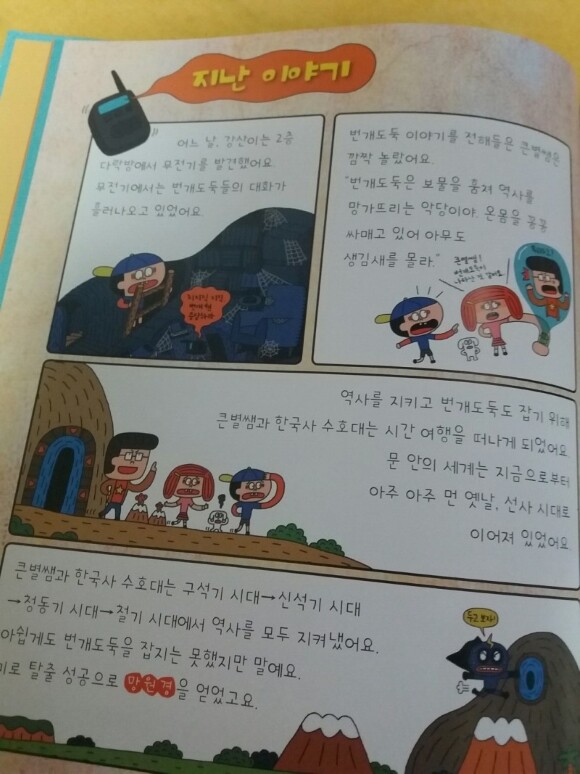 지난 이야기
어느 날, 강산이는 2층
다락방에서 무전기를 발견했어요.
무전기에서는 번개도둑들의 대화가
흘러나오고 있었어요.
번개도둑 이야기를 전해들은 큰별쌤은
깜짝 놀랐어요.
"번개도둑은 보물을 훔쳐 역사를
망가뜨리는 악당이야. 온몸을 꽁꽁
싸매고 있어 아무도
생김새를 몰라."
큰별쌤!
번개도둑이
역사를 지키고 번개도둑도 잡기 위해
큰별쌤과 한국사 수호대는 시간 여행을 떠나게 되었어요.
문 안의 세계는 지금으로부터
아주 아주 먼 옛날, 선사 시대로
이어져 있었어요.
큰별쌤과 한국사 수호대는 구석기 시대→신석기 시대
→청동기 시대→철기 시대에서 역사를 모두 지켜냈어요.
아쉽게도 번개도둑을 잡지는 못했지만 말예요.
미로 탈출 성공으로 망원경을 얻었고요.
두고 보자!